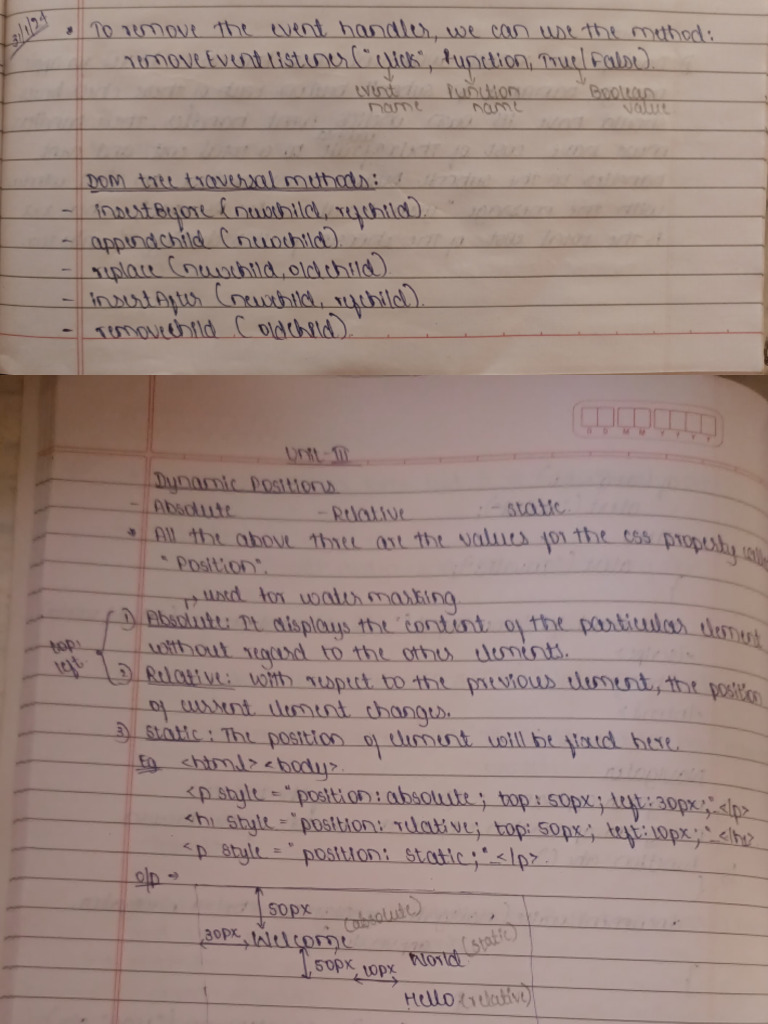 31/1/24
• To remove the event handler, we can use the method:
removeEventListener ("click", function, True/False)
event name
function name
Boolean value
DOM tree traversal methods:
- insertBefore (newchild, refchild).
- appendchild (newchild).
- replace (newchild, oldchild)
- insertAfter (newchild, refchild).
- removechild (oldchild).
D D M M Y Y Y Y
Unit-III
Dynamic Positions
- Absolute - Relative - static
• All the above three are the values for the css property
"Position".
↳ used for watermarking
top:
left
1) Absolute: It displays the content of the particular element
without regard to the other elements.
2) Relative: with respect to the previous element, the position
of current element changes.
3) static: The position of element will be fixed here.
Eg <html><body>
<p style = "position: absolute; top: 50px; left: 30px;"_</p>
<h1 style = "position: relative; top: 50px; left: 10px;"_</h1>
<p style = "position: static;"_</p>.
O/p →
50px
30px, Welcome (absolute)
50px 10px World (static)
Hello (relative)